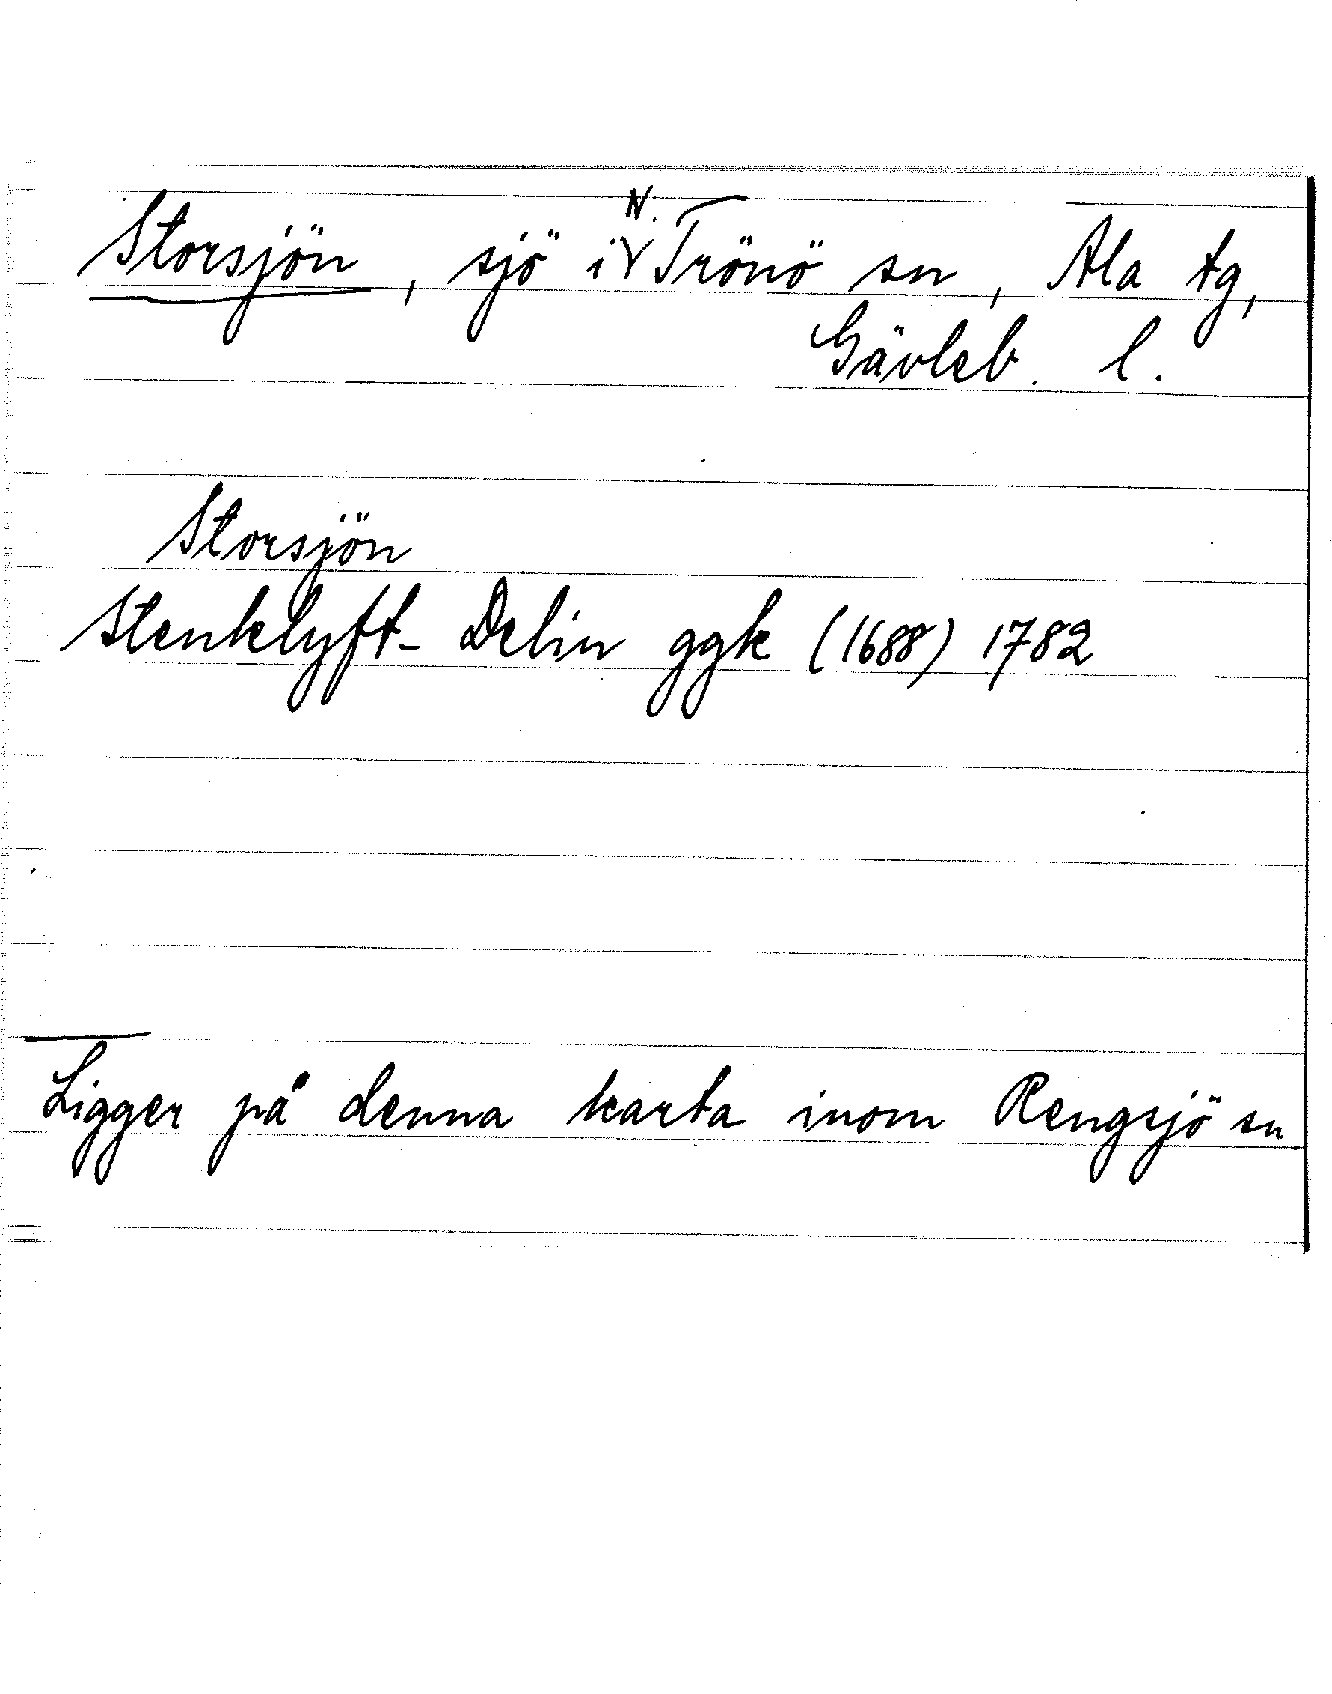 Storsjön, sjö i N. Trönö sn, Ala tg,
Gävleb. l.
Storsjön
Stenklyft- Delin ggk (1688) 1782
Ligger på denna karta inom Rengsjö sn